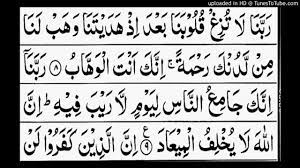 uploaded in HD @ TunesToTube.com
رَبَّنَا لَا تُزِغْ قُلُوْبَنَا بَعْدَ اِذْ هَدَيْتَنَا وَهَبْ لَنَا
مِنْ لَّدُنْكَ رَحْمَةً ۚ اِنَّكَ اَنْتَ الْوَهَّابُ ۸ رَبَّنَاۤ
اِنَّكَ جَامِعُ النَّاسِ لِيَوْمٍ لَّا رَيْبَ فِيْهِ ؕ اِنَّ
اللّٰهَ لَا يُخْلِفُ الْمِيْعَادَ ۹ ع اِنَّ الَّذِيْنَ كَفَرُوْا لَنْ